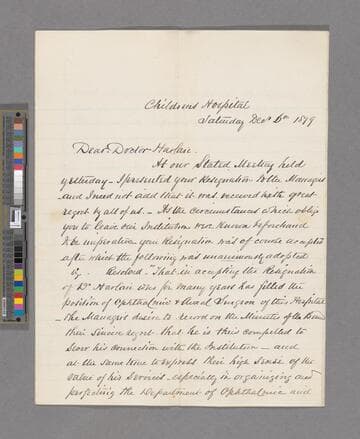 Childrens Hospital
Saturday Decr 6th 1879
Dear Doctor Harlan.
At our Stated Meeting held
yesterday - I presented your Resignation to the Managers
and I need not add that it was received with great
regret by all of us. - As the circumstances which oblige
you to leave our Institution were known beforehand
to be imperative your Resignation was of course accepted
after which the following was unanimously adopted
Resolved. That in accepting the Resignation
of Dr Harlan who for many years has filled the
position of Ophthalmic & Aural Surgeon of this Hospital
the Managers desire to record on the Minutes of the Board
their sincere regret that he is thus compelled to
sever his connection with the Institution - and
at the same time to express their high sense of the
value of his services - especially in organizing and
perfecting the Department of Ophthalmic and